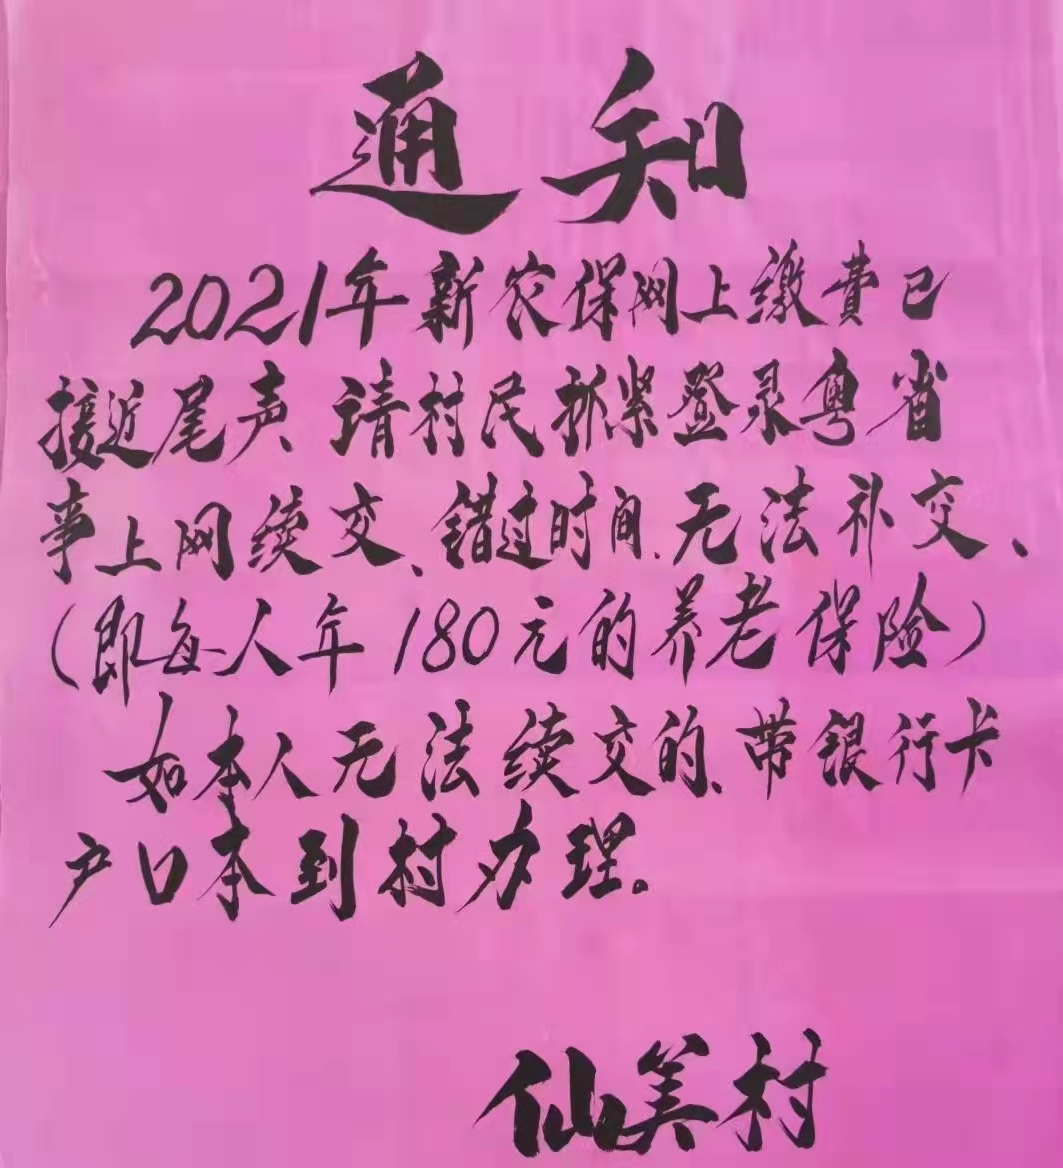 通知
2021年新农保网上缴費已
接近尾声、请村民抓紧登录粤省
事上网续交、错过时间、无法补交、
（即每人年180元的养老保险）
如本人无法续交的、带银行卡
户口本到村办理。
仙美村